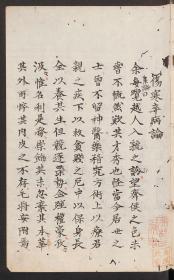 傷寒卒病論
余每覽越人入虢之診望齊侯之色未
嘗不慨然歎其才秀也怪當今居世之
士曾不留神醫藥精究方術上以療君
親之疾下以救貧賤之厄中以保身長
全以養其生但競逐榮勢企踵權豪孜
孜汲汲惟名利是務崇飾其末忽棄其本華
其外而悴其內皮之不存毛將安附焉